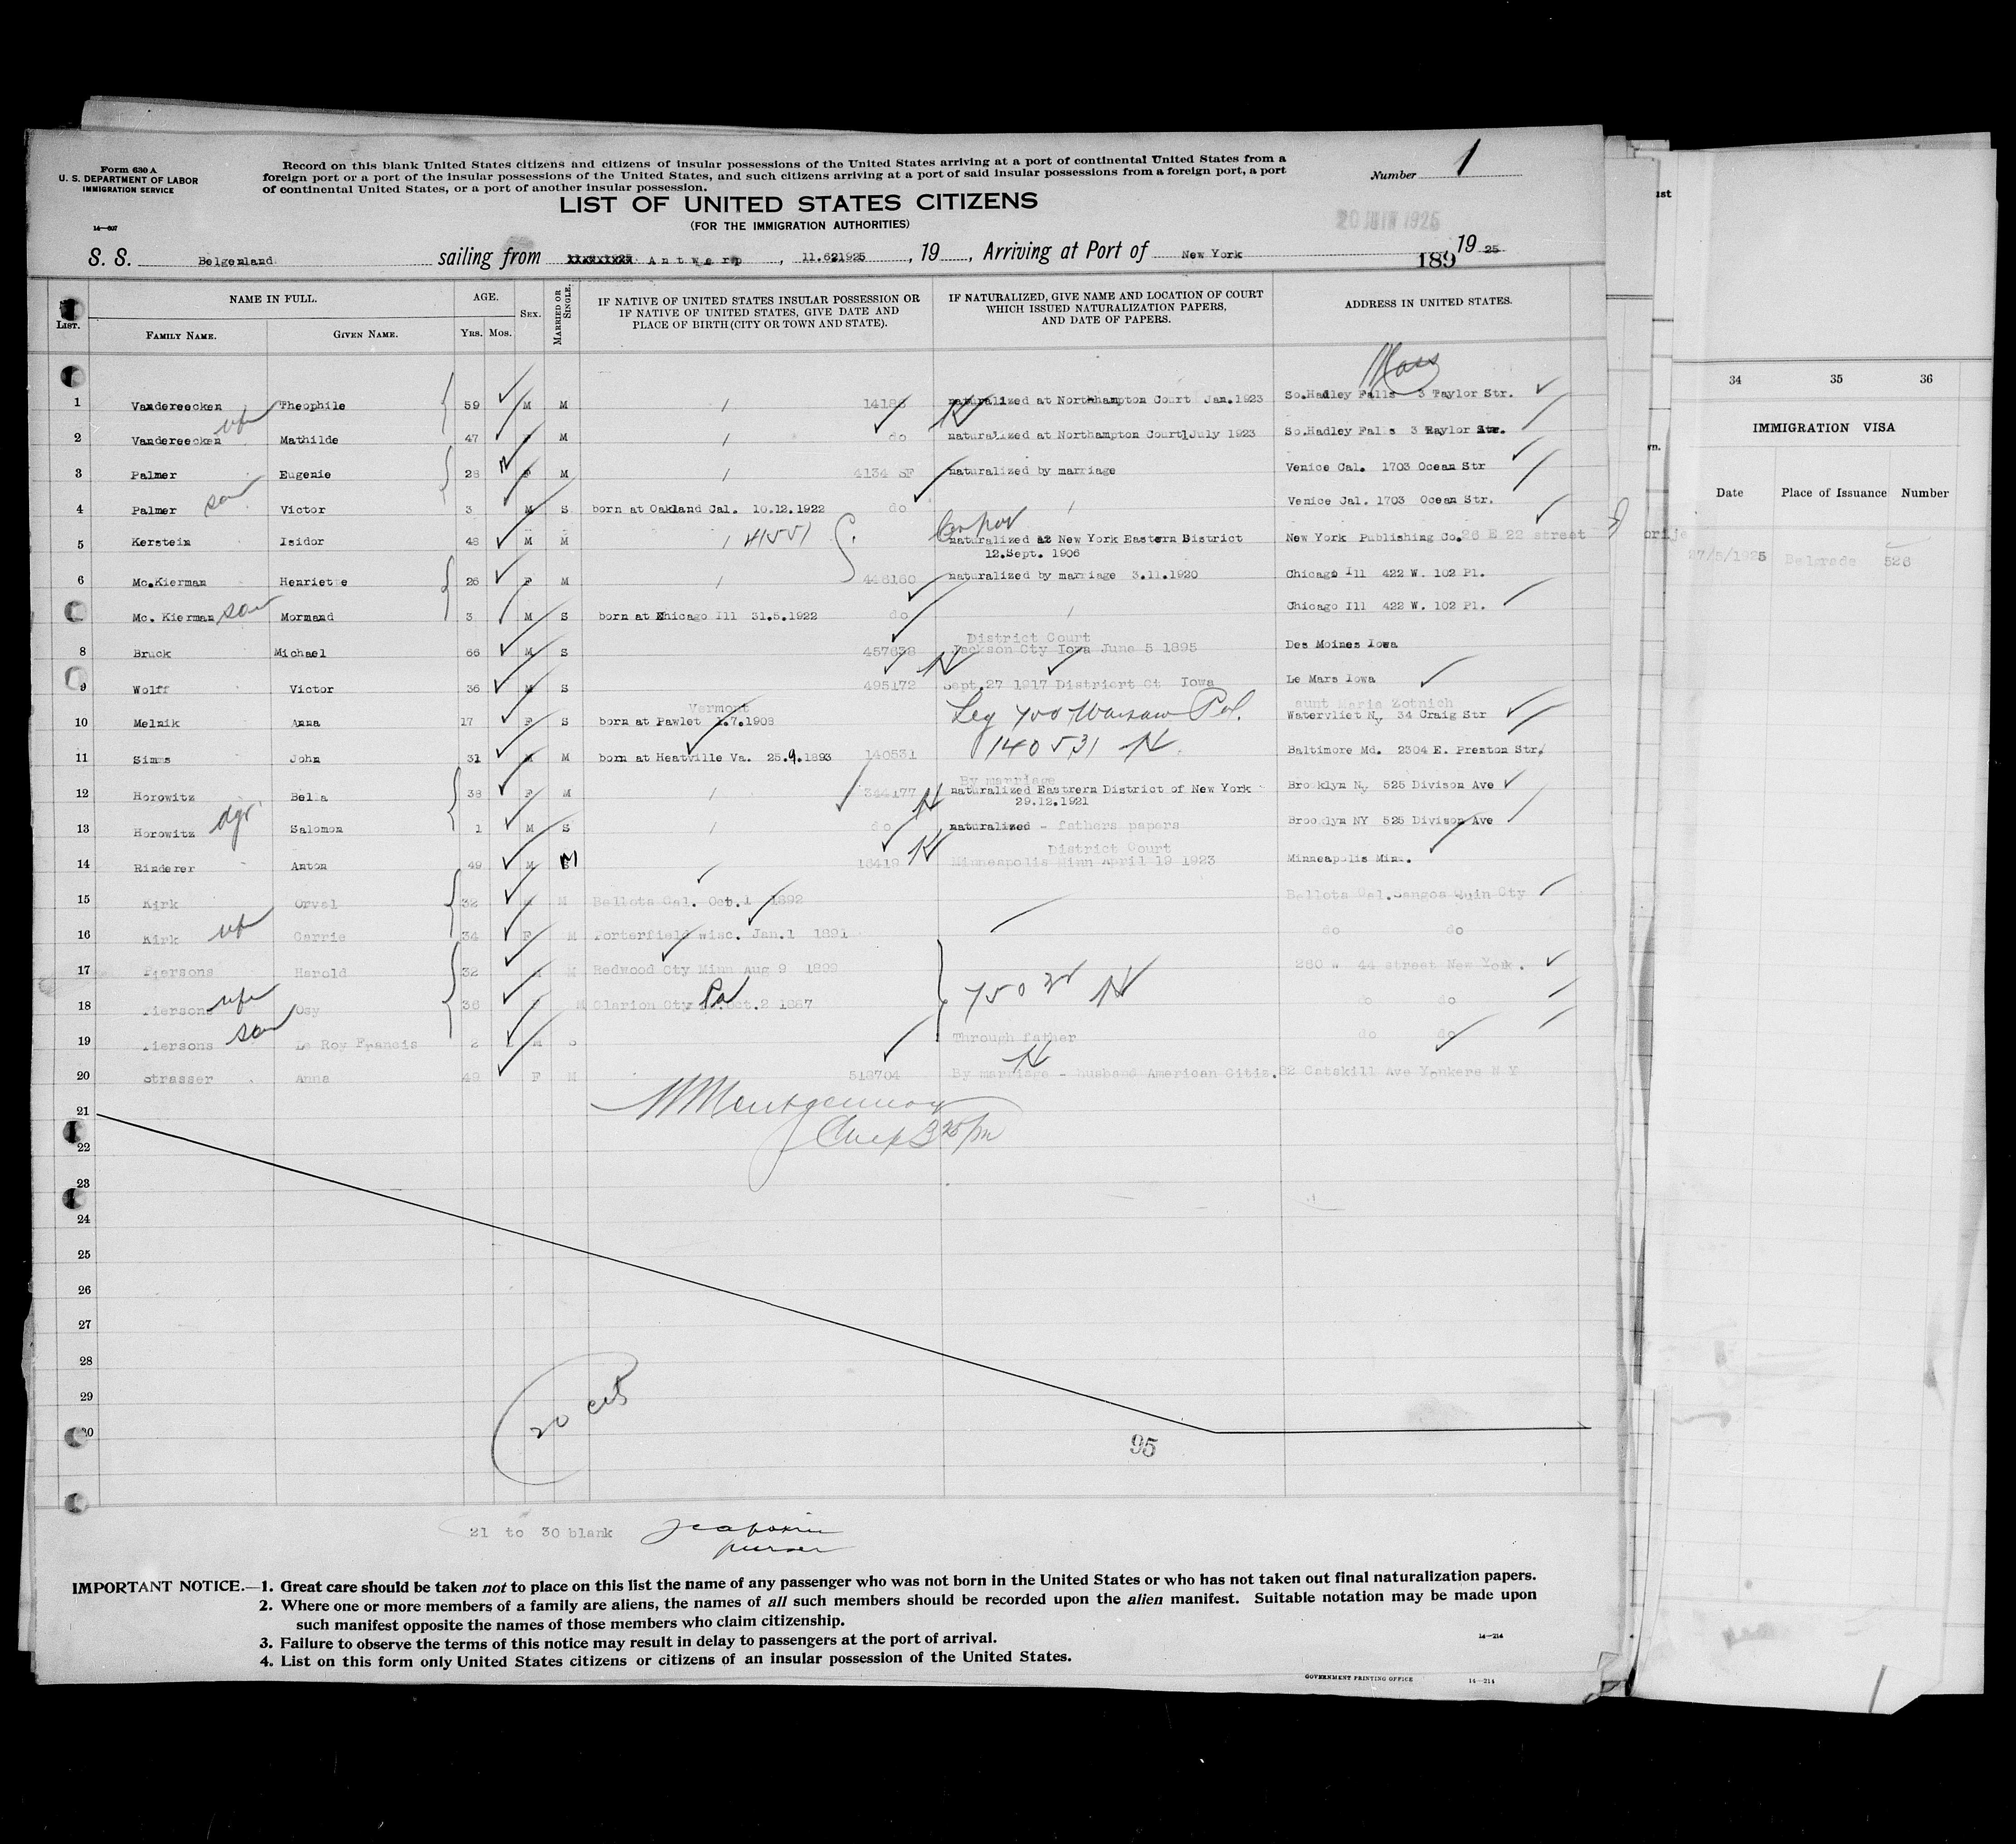 Form 630 A
U. S. DEPARTMENT OF LABOR
IMMIGRATION SERVICE
14—607
Record on this blank United States citizens and citizens of insular possessions of the United States arriving at a port of continental United States from a
foreign port or a port of the insular possessions of the United States, and such citizens arriving at a port of said insular possessions from a foreign port, a port
of continental United States, or a port of another insular possession.
Number 1
LIST OF UNITED STATES CITIZENS
(FOR THE IMMIGRATION AUTHORITIES)
20 JUIN 1925
S. S. Belgenland sailing from Antwerp, 11.6 1925, 19, Arriving at Port of New York 189 19 25
LIST.
NAME IN FULL.
FAMILY NAME. GIVEN NAME.
AGE.
YRS. MOS.
SEX.
MARRIED OR SINGLE.
IF NATIVE OF UNITED STATES INSULAR POSSESSION OR
IF NATIVE OF UNITED STATES, GIVE DATE AND
PLACE OF BIRTH (CITY OR TOWN AND STATE).
IF NATURALIZED, GIVE NAME AND LOCATION OF COURT
WHICH ISSUED NATURALIZATION PAPERS,
AND DATE OF PAPERS.
ADDRESS IN UNITED STATES.
Mass
1 Vandereecken Theophile 59 M M naturalized at Northampton Court Jan.1923 So.Hadley Falls 3 Taylor Str.
2 Vandereecken wf Mathilde 47 M do naturalized at Northampton Court July 1923 So.Hadley Falls 3 Taylor Str.
3 Palmer Eugenie 28 F M 4134 SF naturalized by marriage Venice Cal. 1703 Ocean Str
4 Palmer son Victor 3 M S born at Oakland Cal. 10.12.1922 do Venice Cal. 1703 Ocean Str.
5 Kerstein Isidor 48 M M 41551 naturalized at New York Eastern District New York Publishing Co. 26 E 22 street
12.Sept. 1906
6 Mc.Kierman Henriette 26 F M 448160 naturalized by marriage 3.11.1920 Chicago Ill 422 W. 102 Pl.
Mc. Kierman son Mormand 3 M S born at Chicago Ill 31.5.1922 do Chicago Ill 422 W. 102 Pl.
District Court
8 Bruck Michael 66 M S 457638 Jackson Cty Iowa June 5 1895 Des Moines Iowa
9 Wolff Victor 36 M S 495172 Sept.27 1917 Distriort Ct Iowa Le Mars Iowa
Vermont aunt Maria Zotnich
10 Melnik Anna 17 F S born at Pawlet 1.7.1908 Leg 400 Warsaw Pol. Watervliet Ny 34 Craig Str
11 Simms John 31 M M born at Heatville Va. 25.9.1893 140531 140531 N Baltimore Md. 2304 E. Preston Str.
By marriage
12 Horowitz Bella 38 F M 344177 naturalized Eastrern District of New York Brooklyn Ny 525 Divison Ave
29.12.1921
13 Horowitz dgr Salomon 1 M S do naturalized - fathers papers Brooklyn NY 525 Divison Ave
District Court
14 Rinderer Anton 49 M M 18419 Minneapolis Minn April 19 1923 Minneapolis Minn.
15 Kirk Orval 32 M Bellota Cal. Oct.1 1892 Bellota Cal.
16 Kirk wf Carrie 34 F M Porterfield wisc. Jan.1 1891 do do
17 Piersons Harold 32 M Redwood Cty Minn Aug 9 260 w 44 street New York.
18 Piersons wife Osy 36 M Clarion Cty Pa Oct.2 1887 do do
19 Piersons son Le Roy Francis 2 M Through father do do
20 Strasser Anna 49 F M 518704 By marriage - husband American Citiz. 82 Catskill Ave Yonkers N Y
21
22
23
24
25
26
27
28
29
30
20 cits
95
21 to 30 blank
purser
IMPORTANT NOTICE.—1. Great care should be taken not to place on this list the name of any passenger who was not born in the United States or who has not taken out final naturalization papers.
2. Where one or more members of a family are aliens, the names of all such members should be recorded upon the alien manifest. Suitable notation may be made upon
such manifest opposite the names of those members who claim citizenship.
3. Failure to observe the terms of this notice may result in delay to passengers at the port of arrival.
4. List on this form only United States citizens or citizens of an insular possession of the United States.
14—214
GOVERNMENT PRINTING OFFICE 14—214
34 35 36
IMMIGRATION VISA
Date Place of Issuance Number
27/5/1925 Belgrade 526